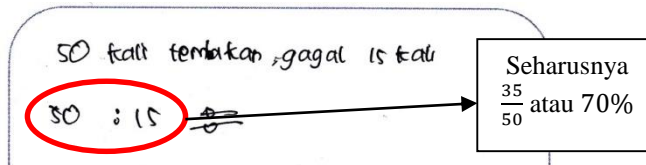 50 kali tembakan, gagal 15 kali
50 : 15
Seharusnya
35/50 atau 70%